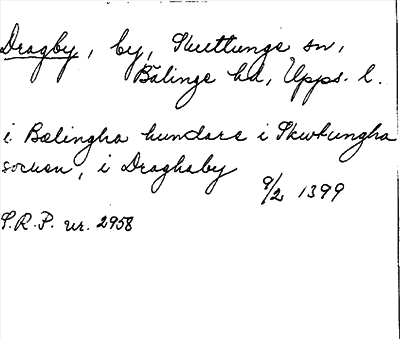 Dragby, by, Skuttunge sn,
Bälinge hd, Upps. l.
i Bælingha hundare i Skutungha
socken, i Draghaby
9/2 1399
S.R.P. nr. 2958